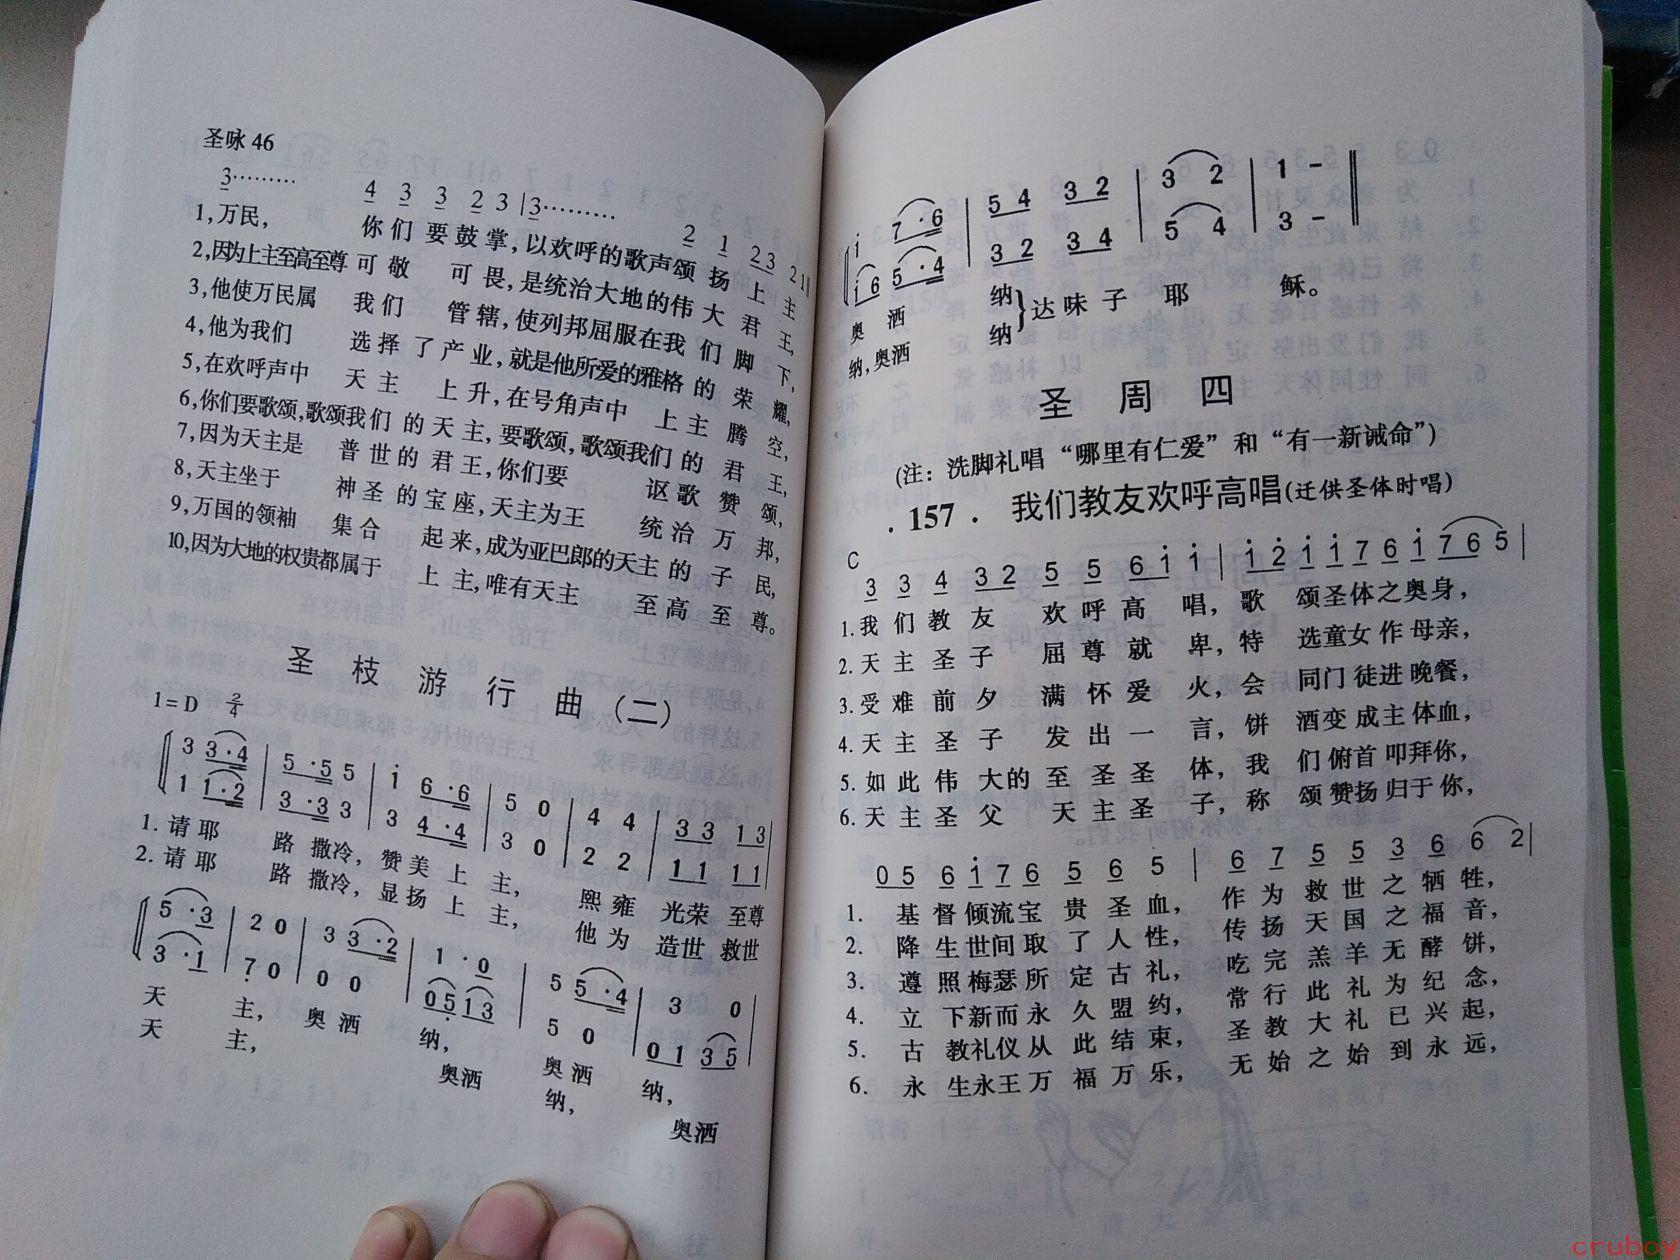 圣咏46
3········· 4 3 3 2 3 | 3········· 2 1 2 3 2 1 ‖
1,万民, 你们要鼓掌,以欢呼的歌声颂扬上主
2,因为上主至高至尊可敬可畏,是统治大地的伟大君王,
3,他使万民属我们管辖,使列邦屈服在我们脚下,
4,他为我们选择了产业,就是他所爱的雅格的荣耀,
5,在欢呼声中天主上升,在号角声中上主腾空,
6,你们要歌颂,歌颂我们的天主,要歌颂,歌颂我们的君王,
7,因为天主是普世的君王,你们要讴歌赞颂,
8,天主坐于神圣的宝座,天主为王统治万邦,
9,万国的领袖集合起来,成为亚巴郎的天主的子民,
10,因为大地的权贵都属于上主,唯有天主至高至尊。
圣枝游行曲(二)
1=D 2/4
3 3·4 | 5·5 5 | i 6·6 | 5 0 | 4 4 | 3 3 1 3
1 1·2 | 3·3 3 | 3 4·4 | 3 0 | 2 2 | 1 1 1 1
1. 请耶路撒冷,赞美上主, 熙雍光荣至尊
2. 请耶路撒冷,显扬上主, 他为造世救世
5·3 | 2 0 | 3 3·2 | 1·0 | 5 5·4 | 3 0
3·1 | 7 0 | 0 0 | 0 5 1 3 | 5 0 | 0 1 3 5
天主, 奥洒纳, 奥洒纳,
天主, 奥洒纳, 奥洒
i 7·6 | 5 4 3 2 | 3 2 | 1 - ‖
i 6 5·4 | 3 2 3 4 | 5 4 | 3 - ‖
奥洒纳
纳,奥洒纳
达味子耶稣。
圣周四
(注:洗脚礼唱“哪里有仁爱”和“有一新诫命”)
·157· 我们教友欢呼高唱(迁供圣体时唱)
C
3 3 4 3 2 5 5 6 i i | i 2 i i 7 6 i 7 6 5 |
1.我们教友欢呼高唱,歌颂圣体之奥身,
2.天主圣子屈尊就卑,特选童女作母亲,
3.受难前夕满怀爱火,会同门徒进晚餐,
4.天主圣子发出一言,饼酒变成主体血,
5.如此伟大的至圣圣体,我们俯首叩拜你,
6.天主圣父天主圣子,称颂赞扬归于你,
0 5 6 i 7 6 5 6 5 | 6 7 5 5 3 6 6 2 |
1. 基督倾流宝贵圣血,作为救世之牺牲,
2. 降生世间取了人性,传扬天国之福音,
3. 遵照梅瑟所定古礼,吃完羔羊无酵饼,
4. 立下新而永久盟约,常行此礼为纪念,
5. 古教礼仪从此结束,圣教大礼已兴起,
6. 永生永王万福万乐,无始之始到永远,
cruboy